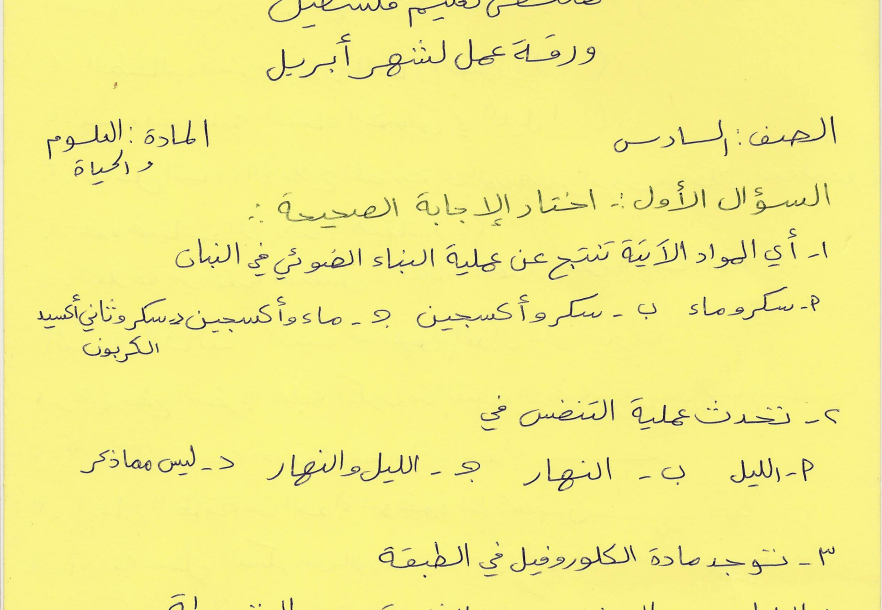 تعليم فلسطين
ورقة عمل لشهر أبريل
الصف: السادس المادة: العلوم
والحياة
السؤال الأول :- اختار الإجابة الصحيحة :-
١- أي المواد الآتية تنتج عن عملية البناء الضوئي في النبات
أ- سكر وماء ب- سكر وأكسجين ج- ماء وأكسجين د- سكر وثاني أكسيد
الكربون
٢- تحدث عملية التنفس في
أ- الليل ب- النهار ج- الليل والنهار د- ليس مما ذكر
٣- توجد مادة الكلوروفيل في الطبقة